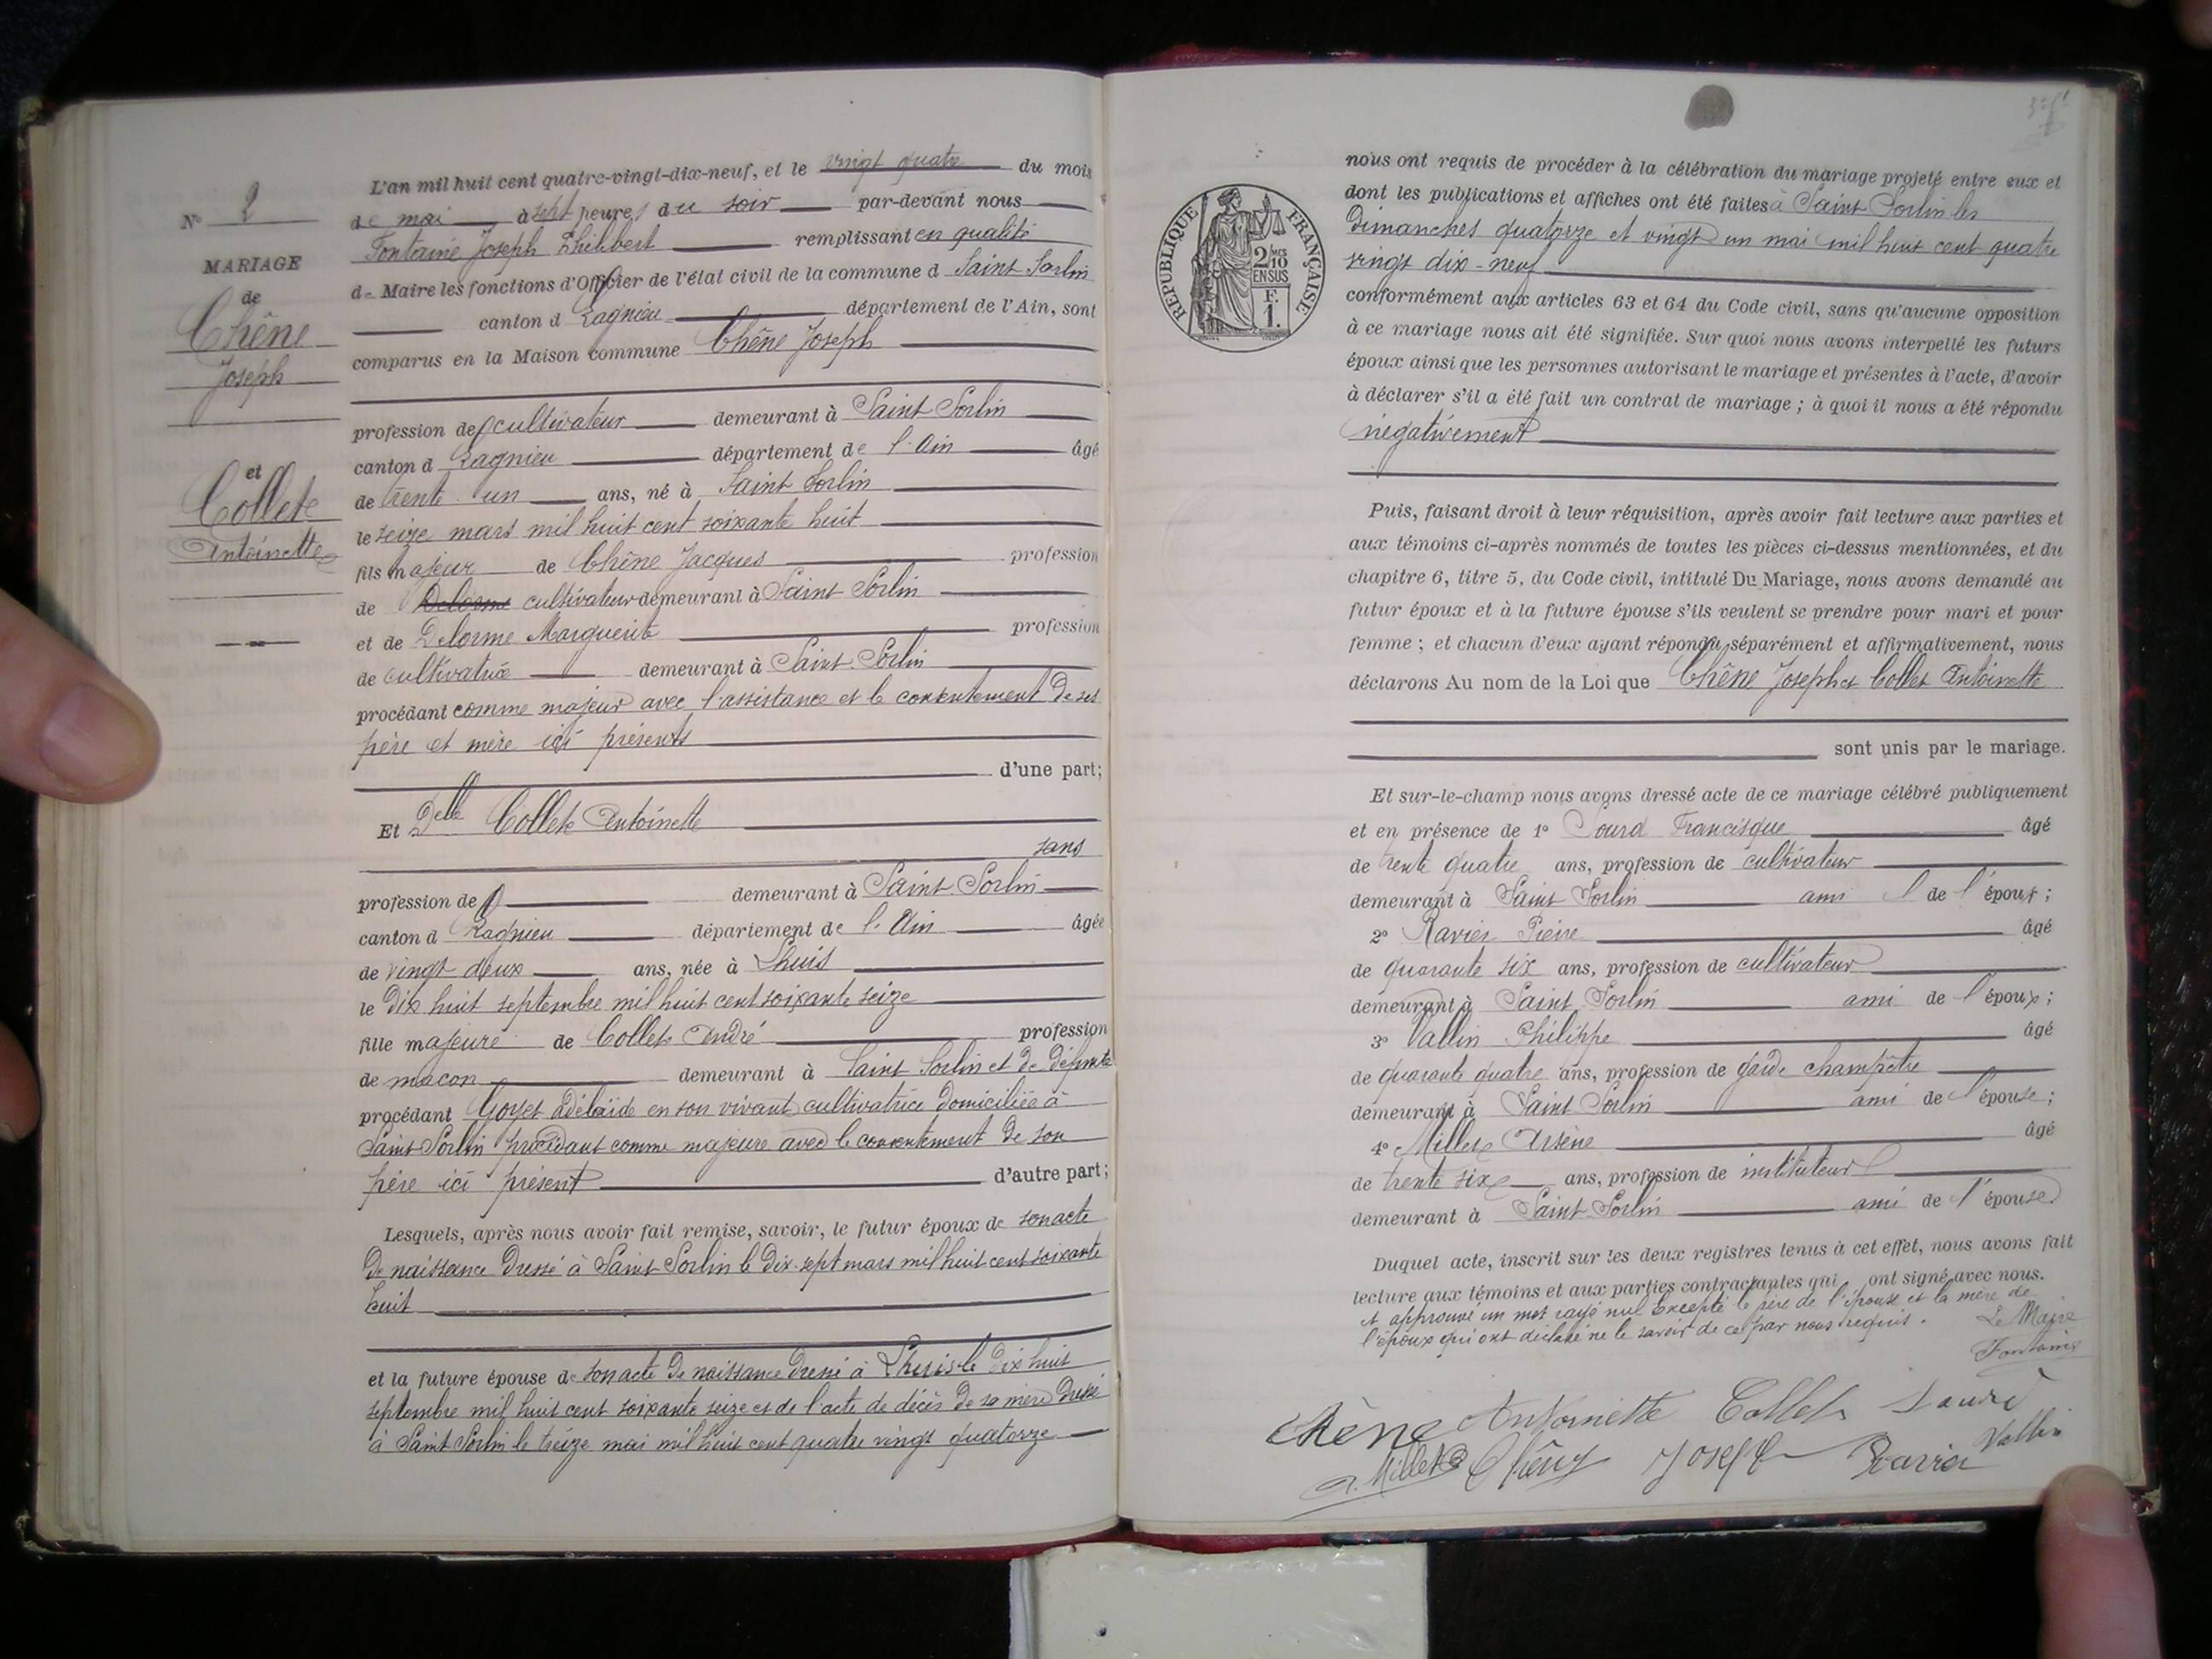 N° 2
MARIAGE
de
Chêne
Joseph
et
Collet
Antoinette
L'an mil huit cent quatre-vingt-dix-neuf, et le vingt quatre du mois
de mai à sept heures du soir par-devant nous
Fontaine Joseph Philibert remplissant en qualité
de Maire les fonctions d'Officier de l'état civil de la commune d Saint Sorlin
canton d Lagnieu département de l'Ain, sont
comparus en la Maison commune Chêne Joseph
profession de cultivateur demeurant à Saint Sorlin
canton d Lagnieu département de l'Ain âgé
de trente un ans, né à Saint Sorlin
le seize mars mil huit cent soixante huit
fils majeur de Chêne Jacques profession
de Delorme cultivateur demeurant à Saint Sorlin
et de Delorme Marguerite profession
de cultivatrice demeurant à Saint Sorlin
procédant comme majeur avec l'assistance et le consentement de ses
père et mère ici présents
d'une part;
Et Delle Collet Antoinette
sans
profession de demeurant à Saint Sorlin
canton d Lagnieu département de l'Ain âgée
de vingt deux ans, née à Lhuis
le dix huit septembre mil huit cent soixante seize
fille majeure de Collet André profession
de maçon demeurant à Saint Sorlin et de défunte
procédant Goyet Adélaïde en son vivant cultivatrice domiciliée à
Saint Sorlin procédant comme majeure avec le consentement de son
père ici présent d'autre part;
Lesquels, après nous avoir fait remise, savoir, le futur époux de son acte
de naissance dressé à Saint Sorlin le dix-sept mars mil huit cent soixante
huit
et la future épouse de son acte de naissance dressé à Lhuis le dix huit
septembre mil huit cent soixante seize et de l'acte de décès de sa mère dressé
à Saint Sorlin le treize mai mil huit cent quatre vingt quatorze
RÉPUBLIQUE FRANÇAISE
2/10 MES
EN SUS
F.
1.
nous ont requis de procéder à la célébration du mariage projeté entre eux et
dont les publications et affiches ont été faites à Saint Sorlin les
dimanches quatorze et vingt un mai mil huit cent quatre
vingt dix-neuf
conformément aux articles 63 et 64 du Code civil, sans qu'aucune opposition
à ce mariage nous ait été signifiée. Sur quoi nous avons interpellé les futurs
époux ainsi que les personnes autorisant le mariage et présentes à l'acte, d'avoir
à déclarer s'il a été fait un contrat de mariage ; à quoi il nous a été répondu
négativement
Puis, faisant droit à leur réquisition, après avoir fait lecture aux parties et
aux témoins ci-après nommés de toutes les pièces ci-dessus mentionnées, et du
chapitre 6, titre 5, du Code civil, intitulé Du Mariage, nous avons demandé au
futur époux et à la future épouse s'ils veulent se prendre pour mari et pour
femme ; et chacun d'eux ayant répondu séparément et affirmativement, nous
déclarons Au nom de la Loi que Chêne Joseph et Collet Antoinette
sont unis par le mariage.
Et sur-le-champ nous avons dressé acte de ce mariage célébré publiquement
et en présence de 1° Sourd Francisque âgé
de trente quatre ans, profession de cultivateur
demeurant à Saint Sorlin ami de l'époux ;
2° Ravier Pierre âgé
de quarante six ans, profession de cultivateur
demeurant à Saint Sorlin ami de l'époux ;
3° Vallin Philippe âgé
de quarante quatre ans, profession de garde champêtre
demeurant à Saint Sorlin ami de l'épouse ;
4° Millet Arsène âgé
de trente six ans, profession de instituteur
demeurant à Saint Sorlin ami de l'épouse
Duquel acte, inscrit sur les deux registres tenus à cet effet, nous avons fait
lecture aux témoins et aux parties contractantes qui ont signé avec nous.
et approuvé un mot rayé nul excepté le père de l'épouse et la mère de
l'époux qui ont déclaré ne le savoir de ce par nous requis. Le Maire
Fontaine
Chêne Antoinette Collet Sourd
A. Millet Chêne Joseph Ravier Vallin